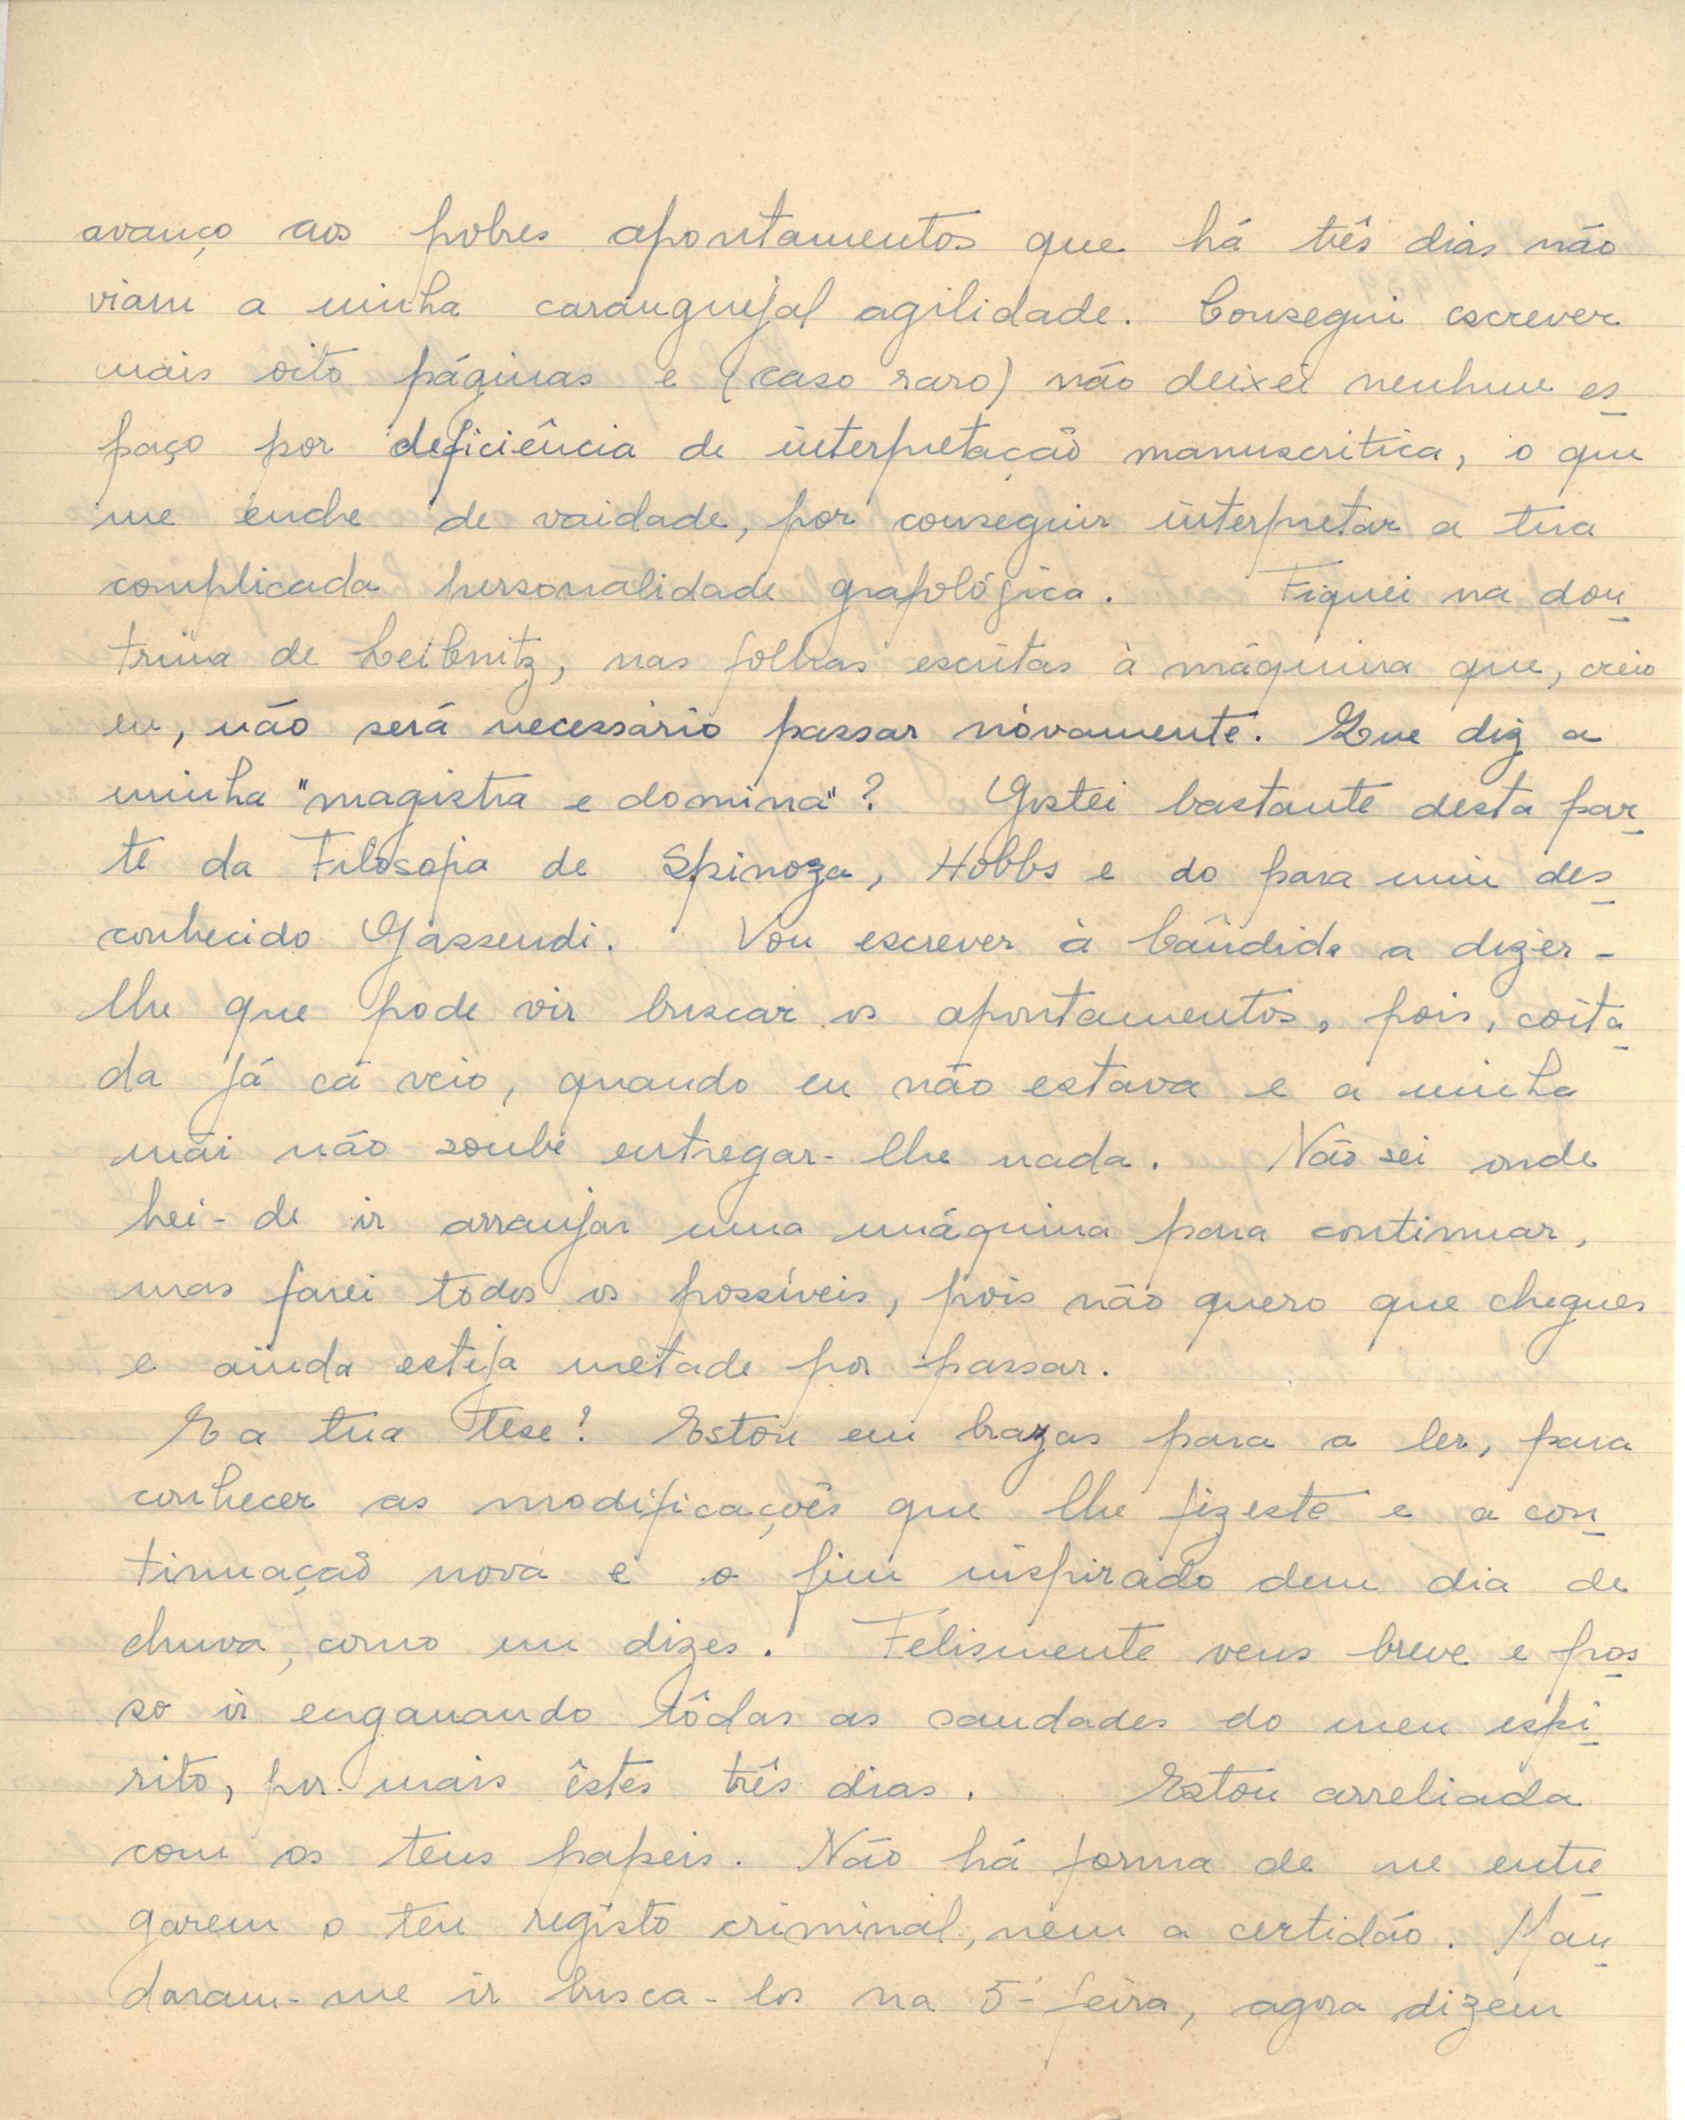 avanço aos pobres apontamentos que há três dias não
viam a minha caranguejal agilidade. Consegui escrever
mais oito páginas e (caso raro) não deixei nenhum es
paço por deficiência de interpretação manuscritica, o que
me enche de vaidade, por conseguir interpretar a tua
complicada personalidade grafológica. Fiquei na dou
trina de Leibnitz, nas folhas escritas à máquina que, creio
eu, não será necessário passar nòvamente. Que diz a
minha "magistra e domina"? Gostei bastante desta par
te da Filosofia de Spinoza, Hobbs e do para mim des
conhecido Gassendi. Vou escrever à Cândida a dizer-
lhe que pode vir buscar os apontamentos, pois, coita
da já cá veio, quando eu não estava e a minha
mãi não soube entregar-lhe nada. Não sei onde
hei-de ir arranjar uma máquina para continuar,
mas farei todos os possíveis, pois não quero que chegues
e ainda esteja metade por passar.
E a tua tese? Estou em brazas para a ler, para
conhecer as modificações que lhe fizeste e a con
tinuação nova e o fim inspirado dum dia de
chuva, como me dizes. Felismente vens breve e pos
so ir enganando tôdas as saudades do meu espí
rito, por mais êstes três dias. Estou arreliada
com os teus papeis. Não há forma de me entre
garem o teu registo criminal, nem a certidão. Man
daram-me ir busca-los na 5ª feira, agora dizem